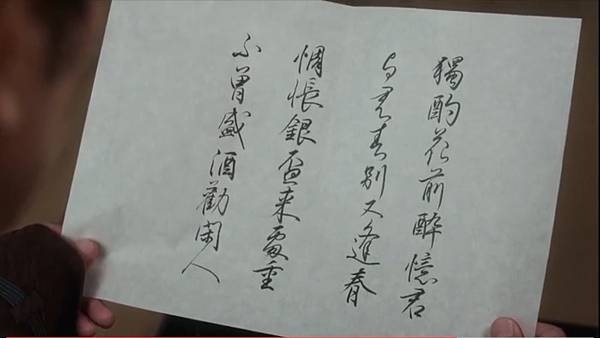 獨酌花前醉憶君
与君春別又逢春
惆悵銀盃来處重
不曾盛酒勸閑人